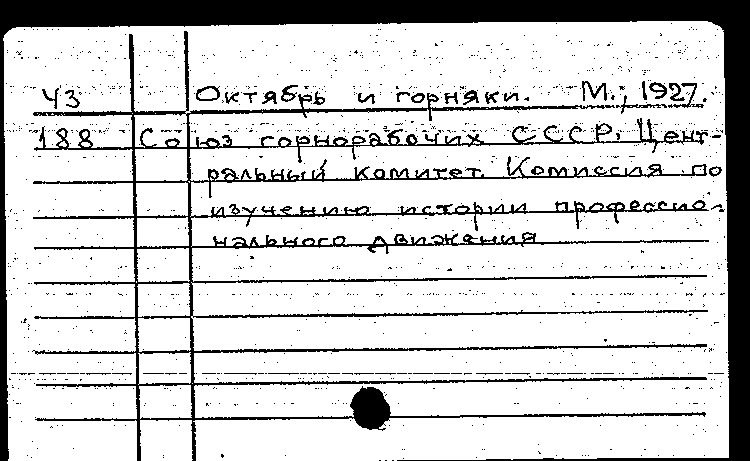 Ч3 Октябрь и горняки. М.; 1927.
188 Союз горнорабочих СССР. Цент-
ральный комитет. Комиссия по
изучению истории профессио-
нального движения